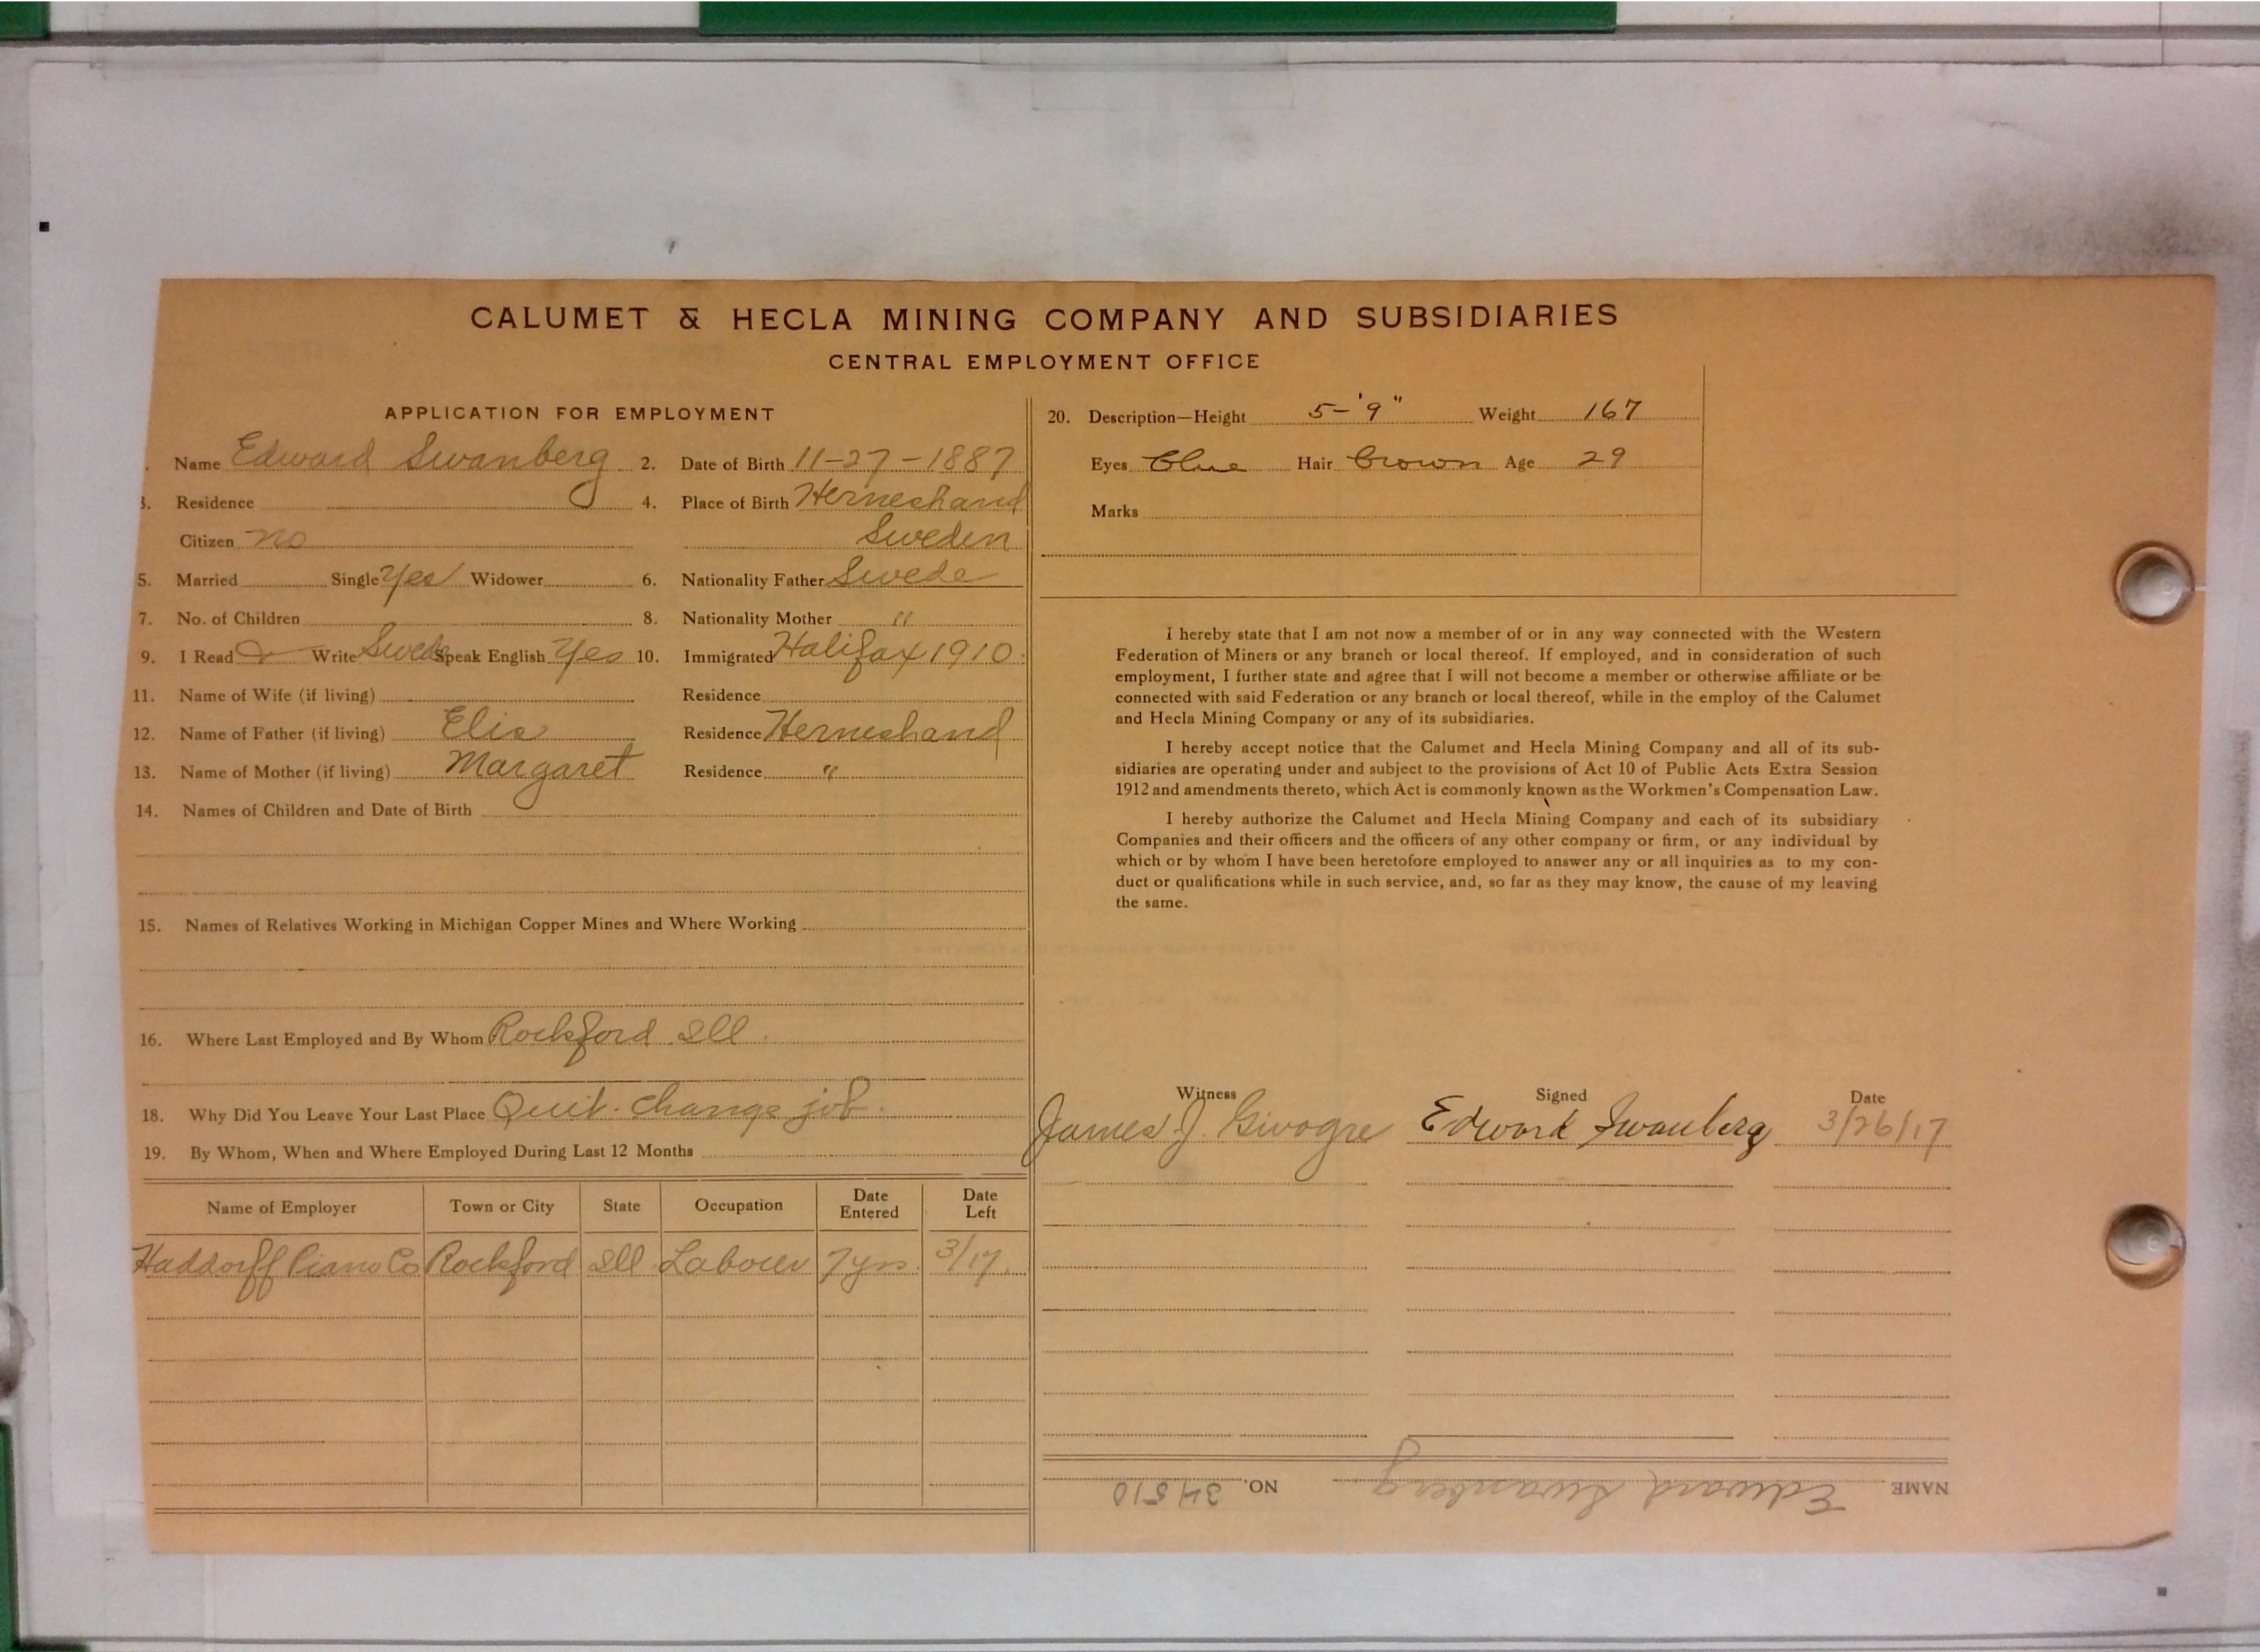 CALUMET & HECLA MINING COMPANY AND SUBSIDIARIES
CENTRAL EMPLOYMENT OFFICE
APPLICATION FOR EMPLOYMENT
Name Edward Swanberg 2. Date of Birth 11-27-1887
3. Residence 4. Place of Birth Herneshand
Citizen no Sweden
5. Married Single Yes Widower 6. Nationality Father Swede
7. No. of Children 8. Nationality Mother "
9. I Read & Write Swede Speak English Yes 10. Immigrated Halifax 1910
11. Name of Wife (if living) Residence
12. Name of Father (if living) Elis Residence Herneshand
13. Name of Mother (if living) Margaret Residence "
14. Names of Children and Date of Birth
15. Names of Relatives Working in Michigan Copper Mines and Where Working
16. Where Last Employed and By Whom Rockford Ill.
18. Why Did You Leave Your Last Place Quit. Change job.
19. By Whom, When and Where Employed During Last 12 Months
Name of Employer Town or City State Occupation Date Entered Date Left
Haddorff Piano Co Rockford Ill Laborer 7 yrs. 3/17.
20. Description—Height 5-'9" Weight 167
Eyes Blue Hair Brown Age 29
Marks
I hereby state that I am not now a member of or in any way connected with the Western
Federation of Miners or any branch or local thereof. If employed, and in consideration of such
employment, I further state and agree that I will not become a member or otherwise affiliate or be
connected with said Federation or any branch or local thereof, while in the employ of the Calumet
and Hecla Mining Company or any of its subsidiaries.
I hereby accept notice that the Calumet and Hecla Mining Company and all of its sub-
sidiaries are operating under and subject to the provisions of Act 10 of Public Acts Extra Session
1912 and amendments thereto, which Act is commonly known as the Workmen's Compensation Law.
I hereby authorize the Calumet and Hecla Mining Company and each of its subsidiary
Companies and their officers and the officers of any other company or firm, or any individual by
which or by whom I have been heretofore employed to answer any or all inquiries as to my con-
duct or qualifications while in such service, and, so far as they may know, the cause of my leaving
the same.
Witness Signed Date
James J. Edward Swanberg 3/26/17
NAME Edward Swanberg NO. 34510